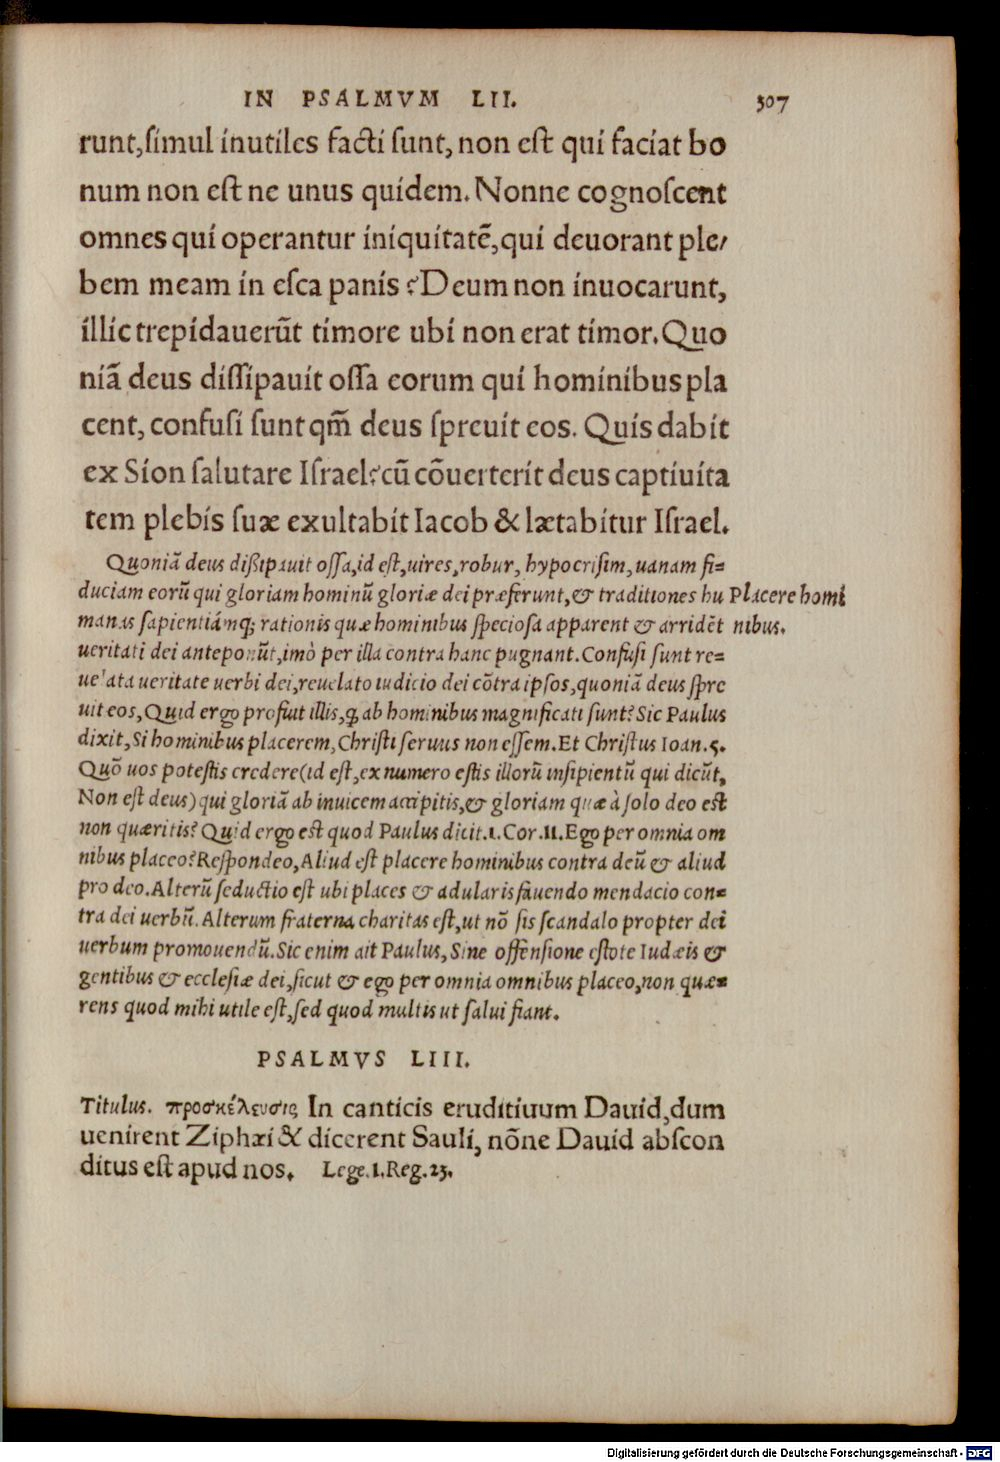 IN PSALMVM LII. 307
runt,ſimul inutiles facti ſunt, non eſt qui faciat bo
num non eſt ne unus quidem. Nonne cognoſcent
omnes qui operantur iniquitatē,qui deuorant ple/
bem meam in eſca panis ? Deum non inuocarunt,
illic trepidauerūt timore ubi non erat timor. Quo
niā deus diſſipauit oſſa eorum qui hominibus pla
cent, confuſi ſunt qm̄ deus ſpreuit eos. Quis dabit
ex Sion ſalutare Iſrael? cū cōuerterit deus captiuita
tem plebis ſuæ exultabit Iacob & lætabitur Iſrael.
Quoniā deus dißipauit oſſa,id eſt,uires,robur, hypocriſim,uanam fi=
duciam eorū qui gloriam hominū gloriæ dei præferunt,& traditiones hu
Placere homi
manas ſapientiámq; rationis quæ hominibus ſpecioſa apparent & arridēt
nibus.
ueritati dei anteponūt,imò per illa contra hanc pugnant. Confuſi ſunt re=
uelata ueritate uerbi dei,reuelato iudicio dei cōtra ipſos,quoniā deus ſpre
uit eos, Quid ergo profiut illis,ꝙ ab hominibus magnificati ſunt? Sic Paulus
dixit, Si hominibus placerem, Chriſti ſeruus non eſſem. Et Chriſtus Ioan.5.
Quō uos poteſtis credere(id eſt,ex numero eſtis illorū inſipientū qui dicūt,
Non eſt deus) qui gloriā ab inuicem accipitis,& gloriam quæ à ſolo deo eſt
non quæritis? Quid ergo eſt quod Paulus dicit.1. Cor.11. Ego per omnia om
nibus placeo? Reſpondeo, Aliud eſt placere hominibus contra deū & aliud
pro deo. Alterū ſeductio eſt ubi places & adularis fauendo mendacio con=
tra dei uerbū. Alterum fraterna charitas eſt,ut nō ſis ſcandalo propter dei
uerbum promouendū. Sic enim ait Paulus, Sine offenſione eſtote Iudæis &
gentibus & eccleſiæ dei,ſicut & ego per omnia omnibus placeo,non quæ=
rens quod mihi utile eſt,ſed quod multis ut ſalui fiant.
PSALMVS LIII.
Titulus. προσκέλευσις In canticis eruditiuum Dauid,dum
uenirent Ziphæi & dicerent Sauli, nōne Dauid abſcon
ditus eſt apud nos. Lege.1.Reg.23.
Digitalisierung gefördert durch die Deutsche Forschungsgemeinschaft - DFG